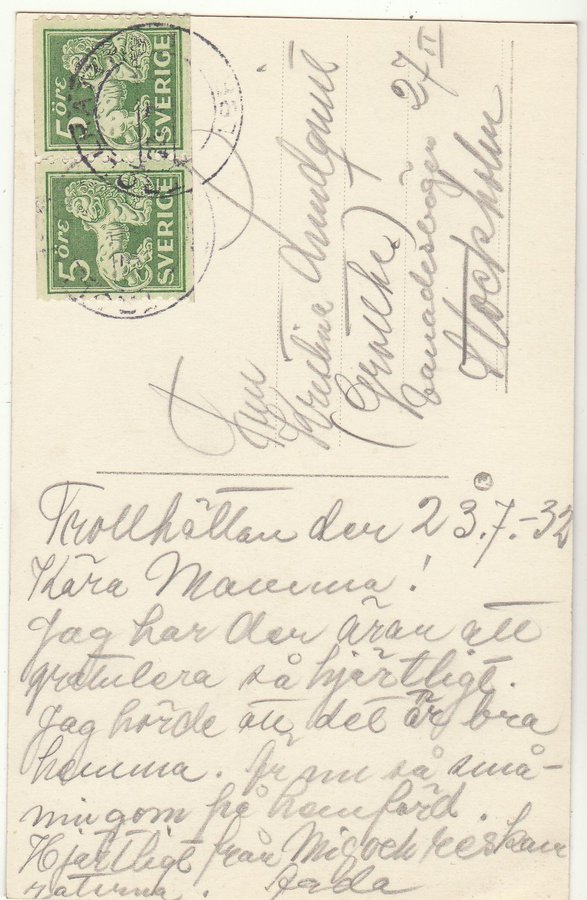 5 ÖRE SVERIGE
5 ÖRE SVERIGE
Fru
Kristina
(Grothe)
27 II
Stockholm
Trollhättan den 23.7.-32
Kära Mamma!
Jag har den äran att
gratulera så hjärtligt.
Jag hörde att det är bra
hemma. Är nu så små-
ningom på hemfärd.
Hjärtligt från Mig och reskam
raterna.